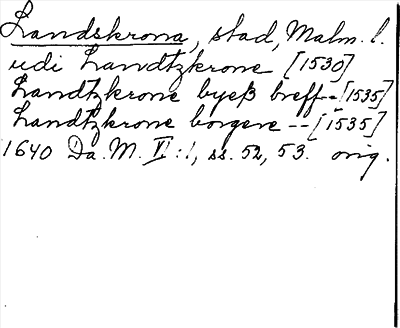 Landskrona, stad, Malm. l.
udi Landtzkrone [1530]
Landtzkrone byeß breff -- [1535]
Landtzkrone borgere -- [1535]
1640 Da. M. VI:1, ss. 52, 53. orig.